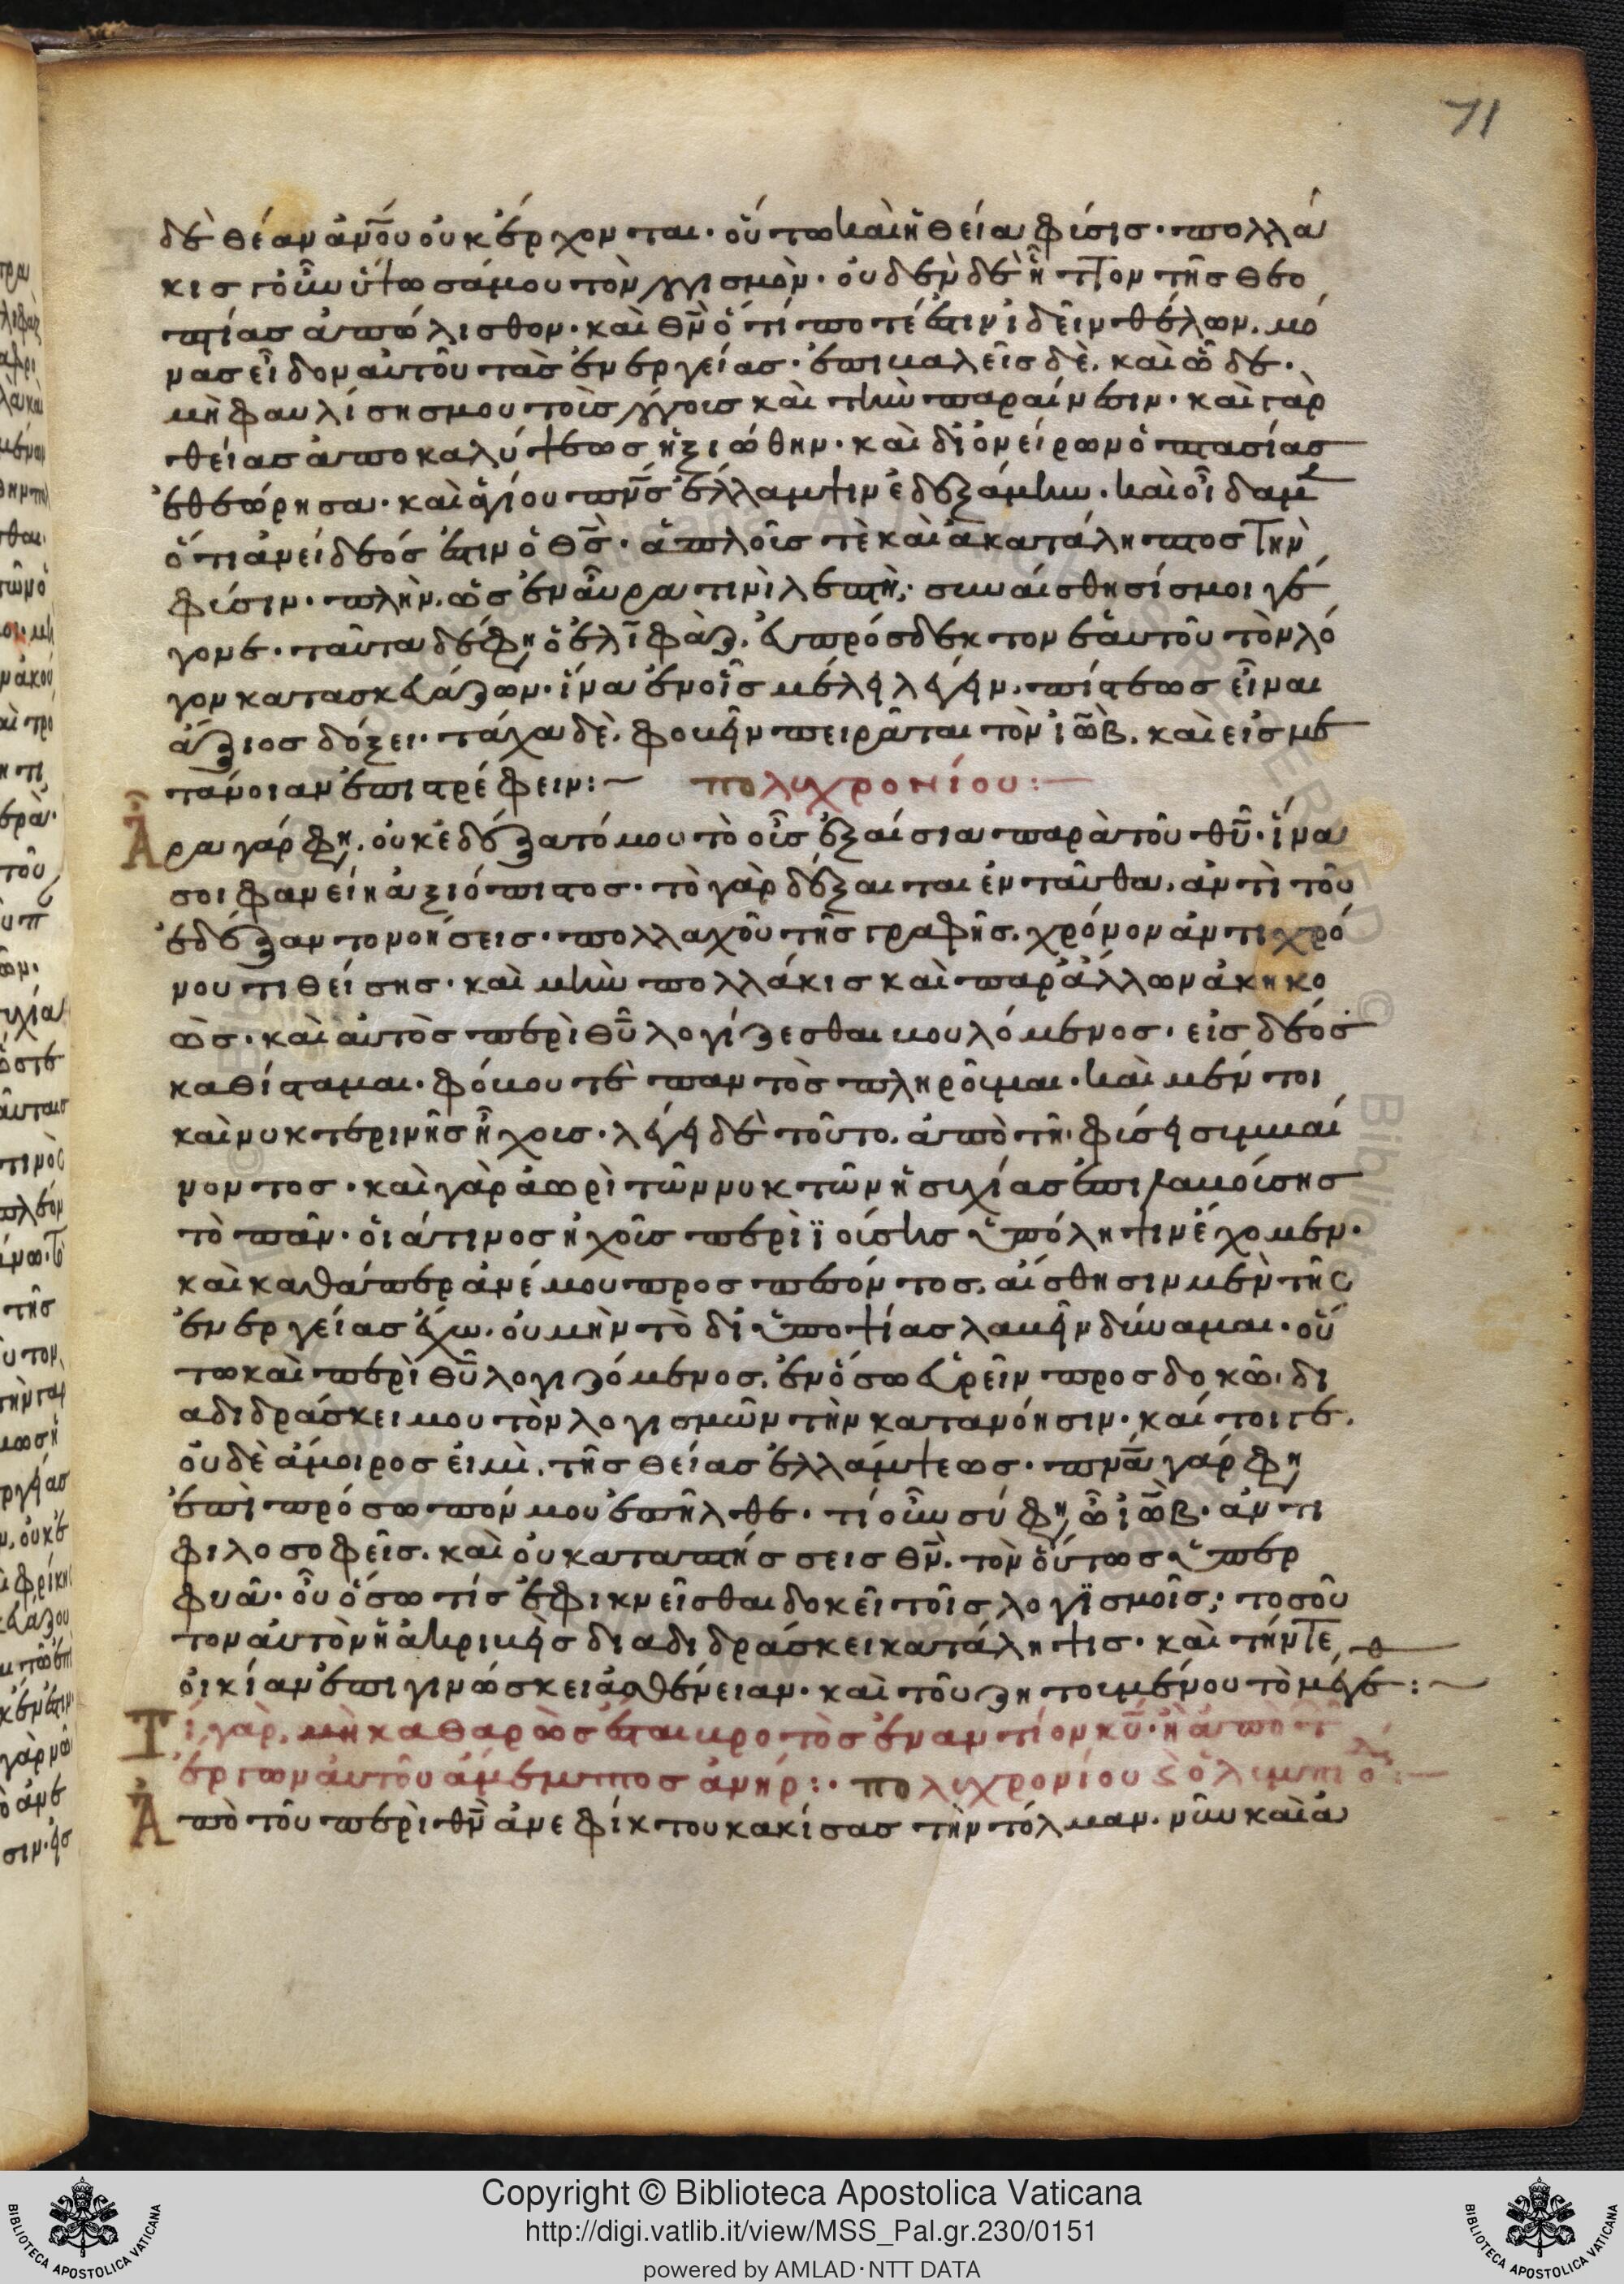 71
δὲ θέαν ἀν̅ου οὐκ έρχονται· οὕτω καὶ ἡ θεία φύσις· πολλά
κις γοῦν ὑψώσας μου τὸν λογισμὸν· οὐδὲν δὲ ἧττον τῆς θεο
πτίας ἀπώλισθον· καὶ θν̅ ὅ τί ποτέ ἐστιν ἰδεῖν θέλων. μό
νας εἶδον αὐτοῦ τὰς ἐνεργείας· ἐπικαλεῖς δὲ. καὶ ὧδε·
μὴ φαυλίσης μου τοῖς λόγοις καὶ τὴν παραίνεσιν· καὶ γὰρ
θείας ἀποκαλύψεως ἠξιώθην· καὶ δι ὀνείρων ὀπτασίας
ἐθεώρησα· καὶ ἁγίου πν̅ς ἔλλαμψιν ἐδεξάμην· καὶ οἶδα μὲν
ὅτι ἀνείδεός ἐστιν ὁ θς̅· ἁπλοῖς τὲ καὶ ἀκατάληπτος τὴν
φύσιν· πλὴν. ὡς ἐν αὔρα τινὶ λεπτὴ· συναίσθησίς μοι γέ
γονε· ταῦτα δέ φη ὁ ἐλιφὰζ. εὐπρόσδεκτον ἑαυτοῦ τὸν λό
γον κατασκευάζων· ἵνα ἐν οἷς μέλει λέγειν. πίστεως εἶναι
ἄξιος δόξει· τάχα δὲ. φοβεῖν πειρᾶται τὸν ἰὼβ. καὶ εἰς με
τάνοιαν ἐπιστρέφειν:~ πολυχρονίου:—
Ἆρα γάρ φη. οὐκ ἐδέξατό μου τὸ οὖς ἐξαίσια παρὰ τοῦ θυ̅· ἵνα
σοι φανείη ἀξιόπιστος· τὸ γὰρ δέξαιται ἐνταῦθα. ἀντὶ τοῦ
ἐδέξαντο νοήσεις· πολλαχοῦ τῆς γραφῆς. χρόνον ἀντι χρό
νου τιθείσης· καὶ μὴν πολλάκις καὶ παρ ἄλλων ἀκηκο
ὼς· καὶ αὐτὸς περὶ θυ̅ λογίζεσθαι βουλόμενος· εἰς δέος
καθίσταμαι· φόβου τὲ παντὸς πληροῦμαι· καὶ μέν τοι
καὶ νυκτερινῆς ἦχοις· λέγει δὲ τοῦτο. ἀπὸ τῆ φύσει συμβαί
νοντος· καὶ γὰρ ἀωρὶ τῶν νυκτῶν ἡσυχίας ἐπιλαβούσης
τὸ πᾶν· οἱ ἅτινος ἠχοῖς περιϊούσης ὑπόληψιν ἔχομεν·
καὶ καθάπερ ἀνέμου προσπεσόντος. αἴσθησιν μὲν τῆς
ἐνεργείας ἔχω. οὐ μὴν τὸ δι ὑποψίας λαβεῖν δύναμαι· οὕ
τω καὶ περὶ θυ̅ λογιζόμενος. ἐν ὅσω εὑρεῖν προσδοκῶ. δι
αδιδράσκει μου τὸν λογισμῶν τὴν κατανόησιν· καί τοι γε.
οὐδὲ ἄμοιρος εἰμὶ. τῆς θείας ἐλλάμψεως· πνα̅ γάρ φη
ἐπὶ πρόσωπόν μου ἐπῆλθε· τί οὖν σύ φη, ὦ ἰὼβ· ἀντι
φιλοσοφεῖς. καὶ οὐ καταπτήσσεις θν̅. τὸν οὕτως ὑπερ
φυᾶ· οὗ ὅσω τίς ἐφικνεῖσθαι δοκεῖ τοῖς λογϊσμοῖς· τοσοῦ
τον αὐτὸν ἡ ἀκριβὴς διαδιδράσκει κατάληψις· καὶ τήν τε
οἰκίαν ἐπιγινώσκει ἀσθένειαν· καὶ τοῦ ζητουμένου τὸ μέγεθο:~
Τί γὰρ. μὴ καθαρὸς ἔσται βροτὸς ἐναντίον κυ̅· ἢ ἀπὸ τ
έργων αὐτοῦ ἄμεμπτος ἀνήρ:· πολυχρονίου ϛ ὀλυμπιοδ:—
Ἀπὸ τοῦ περὶ θν̅ ἀνεφίκτου κακίσας τὴν τόλμαν. νῦν καὶ ἀ
Copyright © Biblioteca Apostolica Vaticana
http://digi.vatlib.it/view/MSS_Pal.gr.230/0151
powered by AMLAD·NTT DATA
BIBLIOTECA APOSTOLICA VATICANA
BIBLIOTECA APOSTOLICA VATICANA